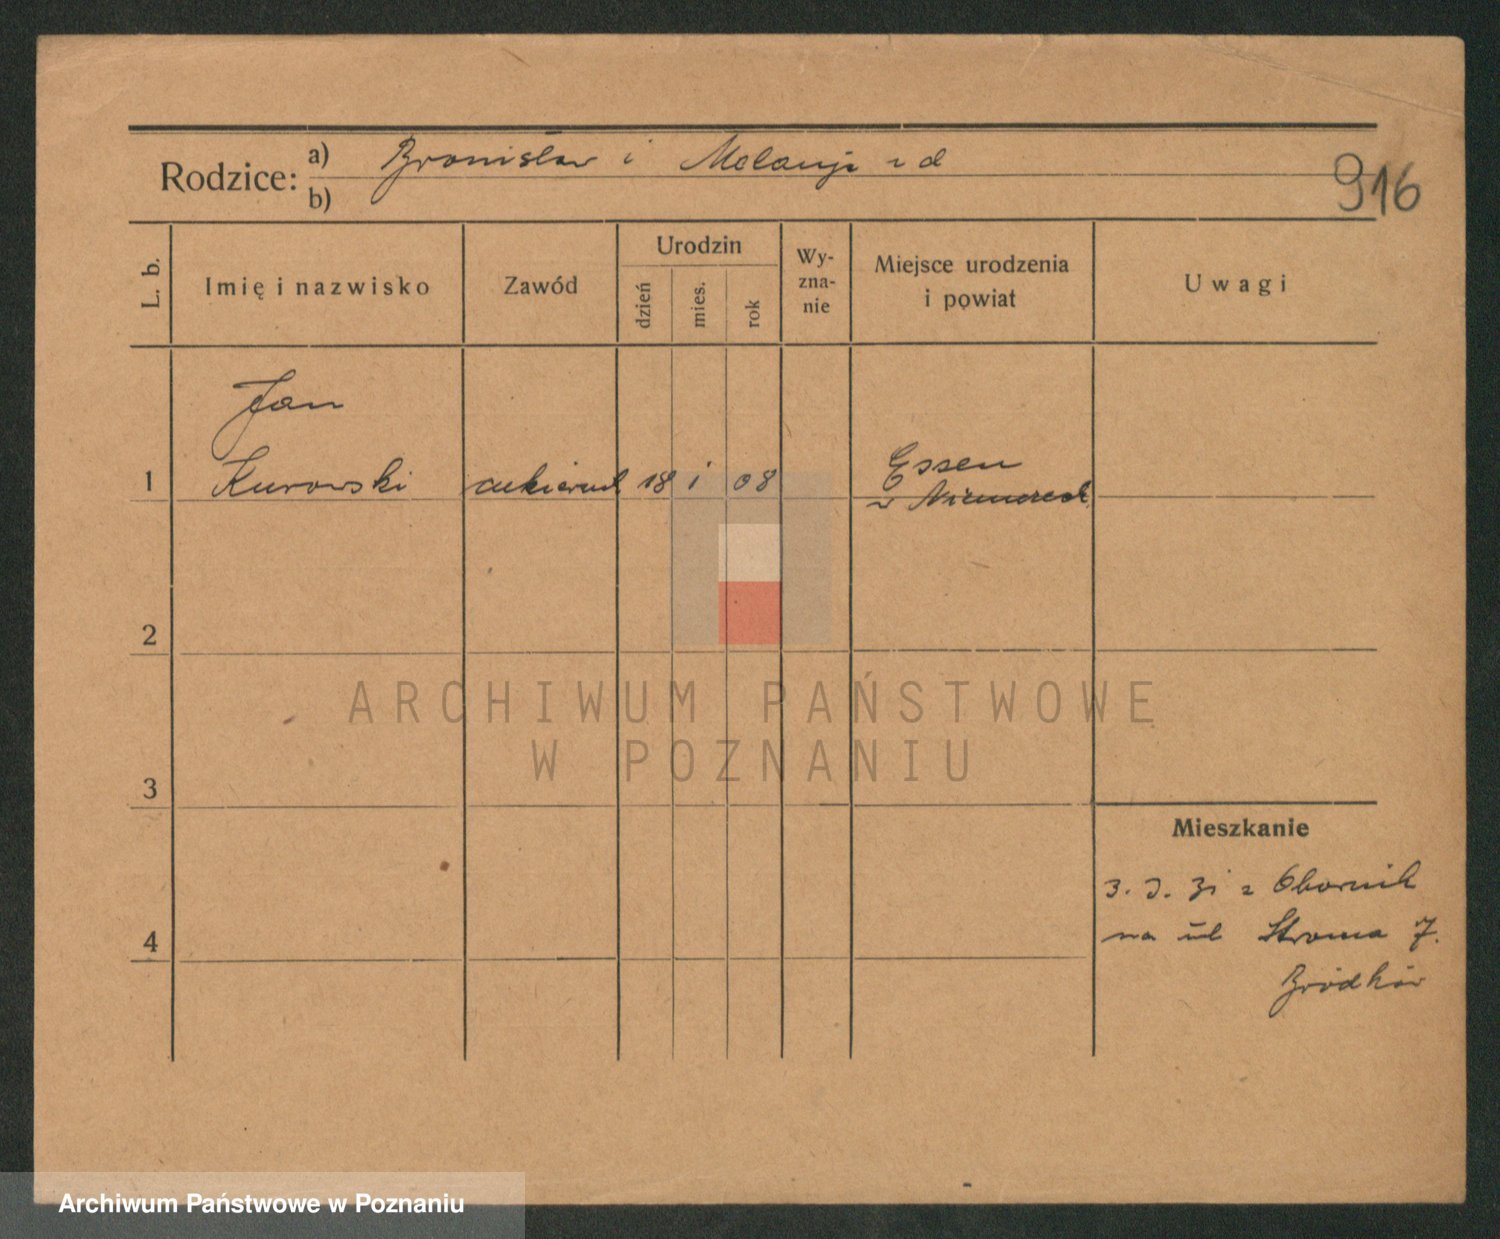 Rodzice: a) Bronisław i Melanja z d
b)
916
L. b. Imię i nazwisko Zawód Urodzin dzień mies. rok Wy-zna-nie Miejsce urodzenia i powiat Uwagi
Jan
1 Kurowski cukiernik 18 i 08 Essen
w Niemczech
2
ARCHIWUM PAŃSTWOWE
W POZNANIU
3
Mieszkanie
3. 3. 31 z Obornik
4 na ul Stroma 7.
Archiwum Państwowe w Poznaniu